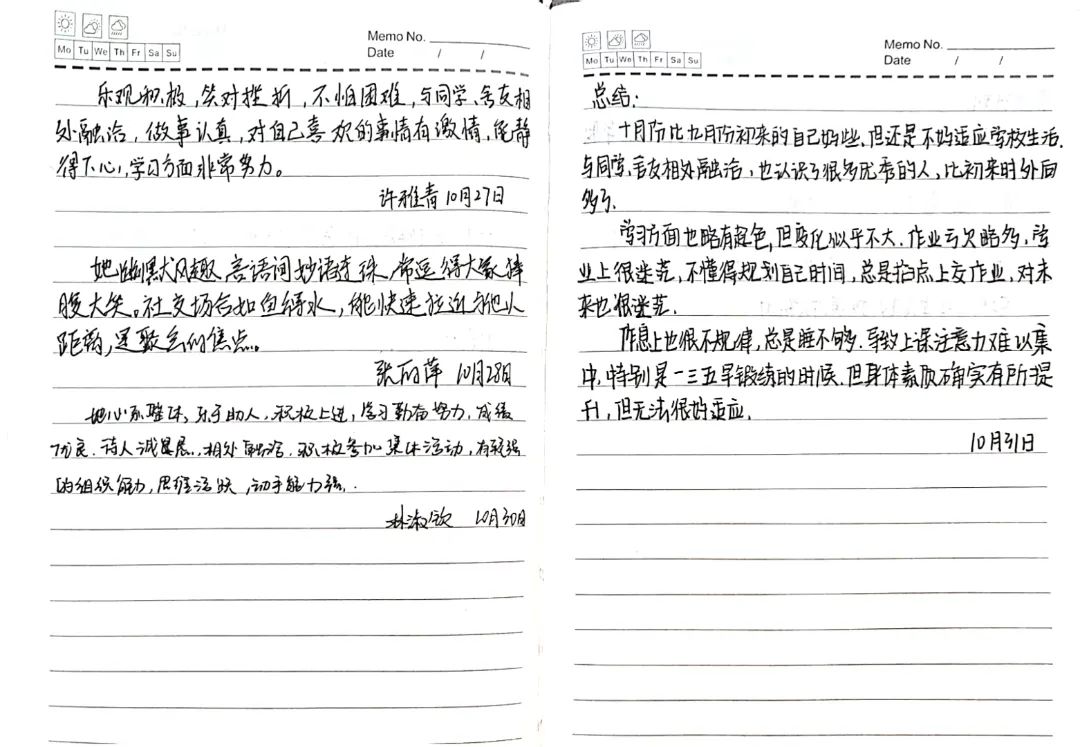 Memo No.
Mo Tu We Th Fr Sa Su
Date / /
乐观积极,笑对挫折,不怕困难,与同学、舍友相
处融洽,做事认真,对自己喜欢的事情有激情,能静
得下心,学习方面非常努力。
许雅青 10月27日
她幽默风趣,言语词妙语连珠,常逗得大家捧
腹大笑。社交场合如鱼得水,能快速拉近与他人
距离,是聚会的焦点。
张丽萍 10月28日
她心系整体,乐于助人,积极上进,学习勤奋努力,成绩
优良.待人诚恳,相处融洽.积极参加集体活动,有较强
的组织能力,思维活跃,动手能力强.
林淑钦 10月30日
Memo No.
Mo Tu We Th Fr Sa Su
Date / /
总结:
十月份比九月份初来的自己好些,但还是不妈适应学校生活.
与同学,舍友相处融洽,也认识了很多优秀的人,比初来时外向
多了.
学习方面也略有起色,但变化似乎不大.作业亏欠略多,学
业上很迷茫,不懂得规划自己时间,总是掐点上交作业,对未
来也很迷茫.
作息上也很不规律,总是睡不够.导致上课注意力难以集
中,特别是一三五早锻练的时候.但身体素质确实有所提
升,但无法很好适应.
10月31日